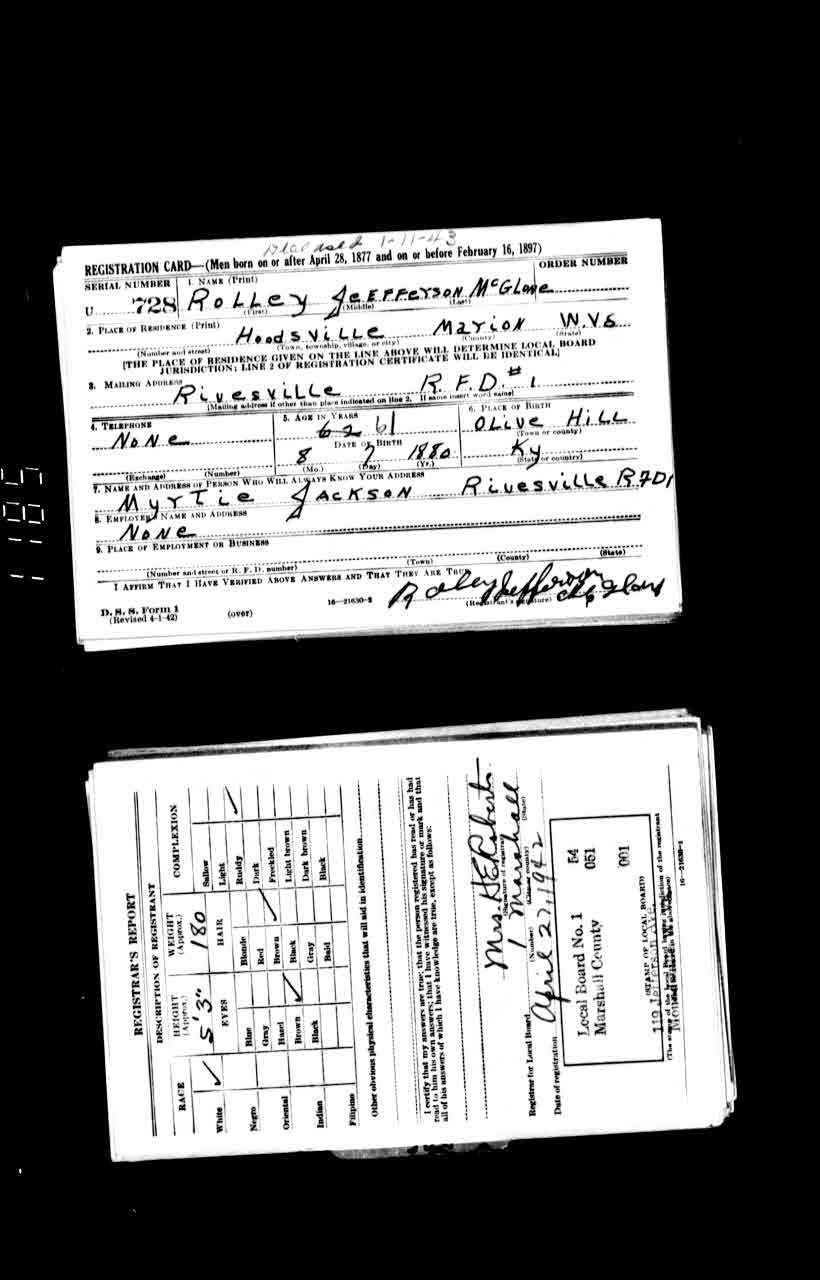 Deceased 1-11-43
REGISTRATION CARD—(Men born on or after April 28, 1877 and on or before February 16, 1897)
SERIAL NUMBER 1. NAME (Print) ORDER NUMBER
U 728 ROLLEY JeEFFeRSON McGLONe
(First) (Middle) (Last)
2. PLACE OF RESIDENCE (Print)
HoodsviLLe Marion W.Va
(Number and street) (Town, township, village, or city) (County) (State)
[THE PLACE OF RESIDENCE GIVEN ON THE LINE ABOVE WILL DETERMINE LOCAL BOARD
JURISDICTION; LINE 2 OF REGISTRATION CERTIFICATE WILL BE IDENTICAL]
3. MAILING ADDRESS
RivesviLLe R.F.D. #1
[Mailing address if other than place indicated on line 2. If same insert word same]
4. TELEPHONE 5. AGE IN YEARS 6. PLACE OF BIRTH
NoNe 62 61 OLive HiLL
(Town or county)
DATE OF BIRTH
8 7 1880 Ky
(Exchange) (Number) (Mo.) (Day) (Yr.) (State or country)
7. NAME AND ADDRESS OF PERSON WHO WILL ALWAYS KNOW YOUR ADDRESS
MyrTie JACKSON RivesviLLe RFD1
8. EMPLOYER'S NAME AND ADDRESS
NoNe
9. PLACE OF EMPLOYMENT OR BUSINESS
(Number and street or R. F. D. number) (Town) (County) (State)
I AFFIRM THAT I HAVE VERIFIED ABOVE ANSWERS AND THAT THEY ARE TRUE.
D. S. S. Form 1
(Revised 4-1-42) (over) 16—21630-2 (Registrant's signature)
Roley Jefferson McGlone
REGISTRAR'S REPORT
DESCRIPTION OF REGISTRANT
RACE HEIGHT (Approx.) WEIGHT (Approx.) COMPLEXION
5'3" 180
White ✓ EYES HAIR Sallow
Light
Negro Blue Blonde Ruddy ✓
Gray Red Dark
Oriental Hazel Brown ✓ Freckled
Brown ✓ Black Light brown
Indian Black Gray Dark brown
Bald Black
Filipino
Other obvious physical characteristics that will aid in identification
I certify that my answers are true; that the person registered has read or has had
read to him his own answers; that I have witnessed his signature or mark and that
all of his answers of which I have knowledge are true, except as follows:
Mrs. H E Roberts
(Signature of registrar)
Registrar for Local Board 1 Marshall
(Number) (City or county) (State)
Date of registration April 27, 1942
Local Board No. 1 54
Marshall County 051
001
119 Jefferson Ave.
(STAMP OF LOCAL BOARD)
(The stamp of the Local Board having jurisdiction of the registrant
16—21630-1